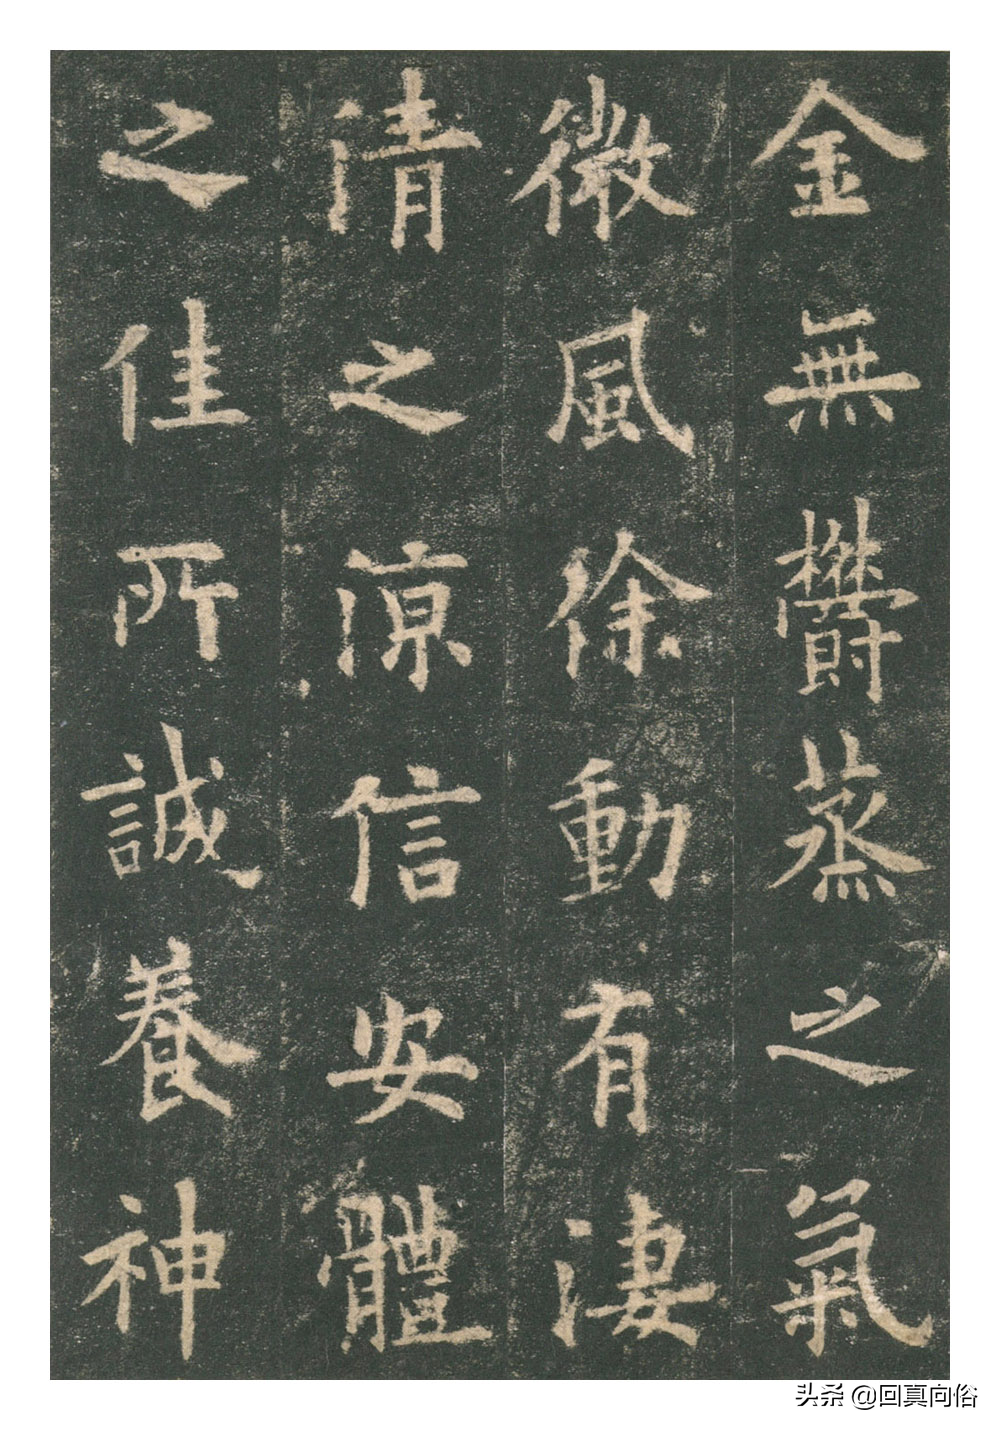 金無欝蒸之氣
微風徐動有淒
清之涼信安體
之佳所誠養神
头条 @回真向俗